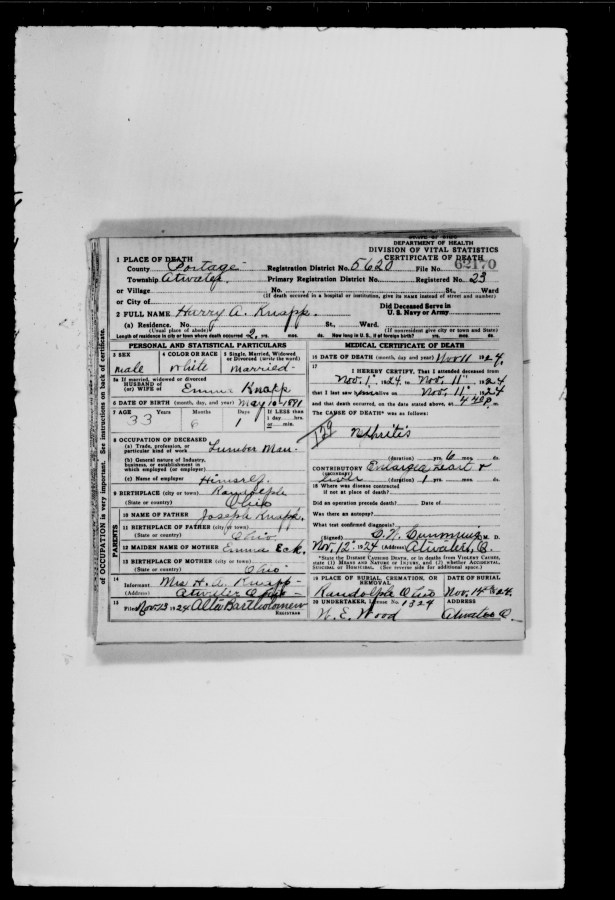 DEPARTMENT OF HEALTH
DIVISION OF VITAL STATISTICS
CERTIFICATE OF DEATH
1 PLACE OF DEATH
County Portage Registration District No. 5620 File No. 62170
Township Atwater Primary Registration District No. Registered No. 23
or Village No. St., Ward
(If death occured in a hospital or institution, give its NAME instead of street and number)
or City of
Did Deceased Serve in
U. S. Navy or Army
2 FULL NAME Harry A. Knapp.
(a) Residence. No. St., Ward.
(Usual place of abode) (If nonresident give city or town and State)
Length of residence in city or town where death occurred 2 yrs. mos. ds. How long in U. S., if of foreign birth? yrs. mos. ds.
PERSONAL AND STATISTICAL PARTICULARS
3 SEX 4 COLOR OR RACE 5 Single, Married, Widowed or Divorced (write the word)
male White married
5a If married, widowed or divorced
HUSBAND of
(or) WIFE of Emma Knapp
6 DATE OF BIRTH (month, day, and year) May 10 - 1891
7 AGE Years Months Days If LESS than
1 day ....hrs.
or ....min.
33 6 1
8 OCCUPATION OF DECEASED
(a) Trade, profession, or
particular kind of work Lumber Man.
(b) General nature of Industry,
business, or establishment in
which employed (or employer)
(c) Name of employer Himself.
9 BIRTHPLACE (city or town) Randolph
(State or country) Ohio
PARENTS
10 NAME OF FATHER Joseph Knapp.
11 BIRTHPLACE OF FATHER (city or town)
(State or country) Ohio
12 MAIDEN NAME OF MOTHER Emma Eck.
13 BIRTHPLACE OF MOTHER (city or town)
(State or country) Ohio
14
Informant Mrs H. A. Knapp
(Address) Atwater Ohio
15
Filed Nov. 13 1924 Alta Bartholomew
REGISTRAR
MEDICAL CERTIFICATE OF DEATH
16 DATE OF DEATH (month, day and year) Nov 11 1924.
17
I HEREBY CERTIFY, That I attended deceased from
Nov. 1 1924, to Nov. 11 1924
that I last saw him alive on Nov. 11 1924
and that death occurred, on the date stated above, at 4 40 P m.
The CAUSE OF DEATH* was as follows:
129 Nephritis
(duration) yrs. 6 mos. ds.
CONTRIBUTORY Enlarged heart &
(SECONDARY)
liver (duration) 1 yrs. mos. ds.
18 Where was disease contracted
if not at place of death?
Did an operation precede death? Date of
Was there an autopsy?
What test confirmed diagnosis?
(Signed) M. D.
Nov. 12 1924 (Address) Atwater, O.
*State the DISEASE CAUSING DEATH, or in deaths from VIOLENT CAUSES, state (1) MEANS AND NATURE OF INJURY, and (2) whether ACCIDENTAL, SUICIDAL or HOMICIDAL. (See reverse side for additional space.)
19 PLACE OF BURIAL, CREMATION, OR REMOVAL DATE OF BURIAL
Randolph Ohio Nov. 14 1924.
20 UNDERTAKER, License No. 1324 ADDRESS
W. E. Wood Atwater O.
of OCCUPATION is very important. See instructions on back of certificate.